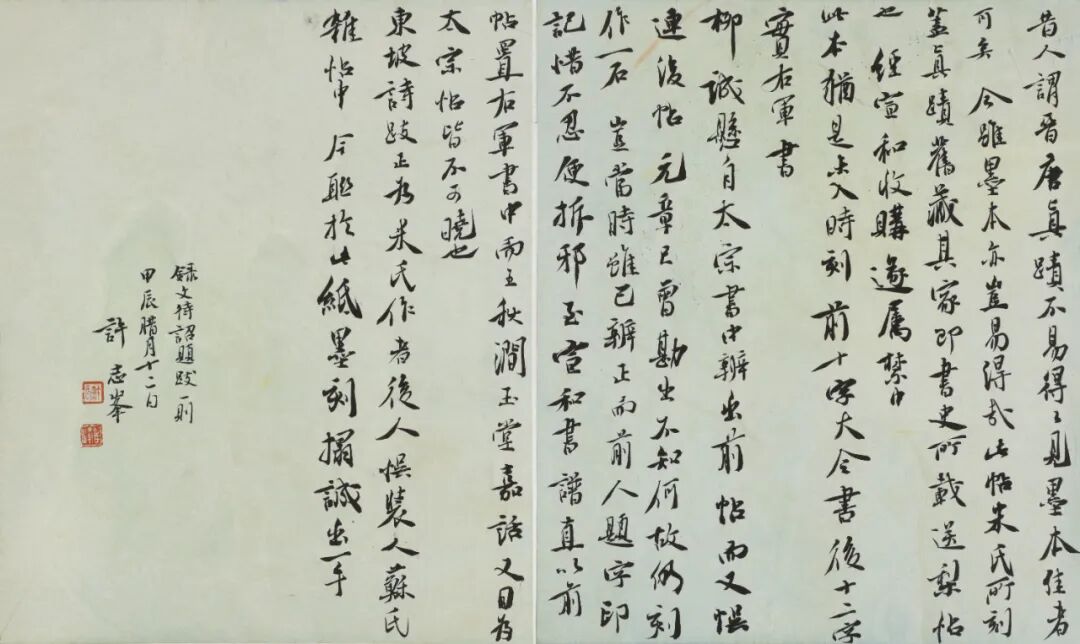 昔人謂晉唐真蹟不易得得見墨本佳者
可矣今雖墨本亦豈易得哉此帖米氏所刻
蓋真蹟舊藏其家即書史所載送梨帖
也經宣和收購遂屬禁中
此本猶是未入時刻前十字大令書後十二字
實右軍書
柳誠懸自太宗書中辨出前帖而又惧
連後帖元章已曾勘出不知何故仍刻
作一石豈當時雖已辨正而前人題字印
記惜不忍便拆邪至宣和書譜直以前
帖置右軍書中而王秋澗玉堂嘉話又目為
太宗帖皆不可曉也
東坡詩跋正為米氏作者後人惧裝入蘇氏
雜帖中今聯於此紙墨刻搨誠出一手
錄文待詔題跋一則
甲辰臘月十二日
許志峯